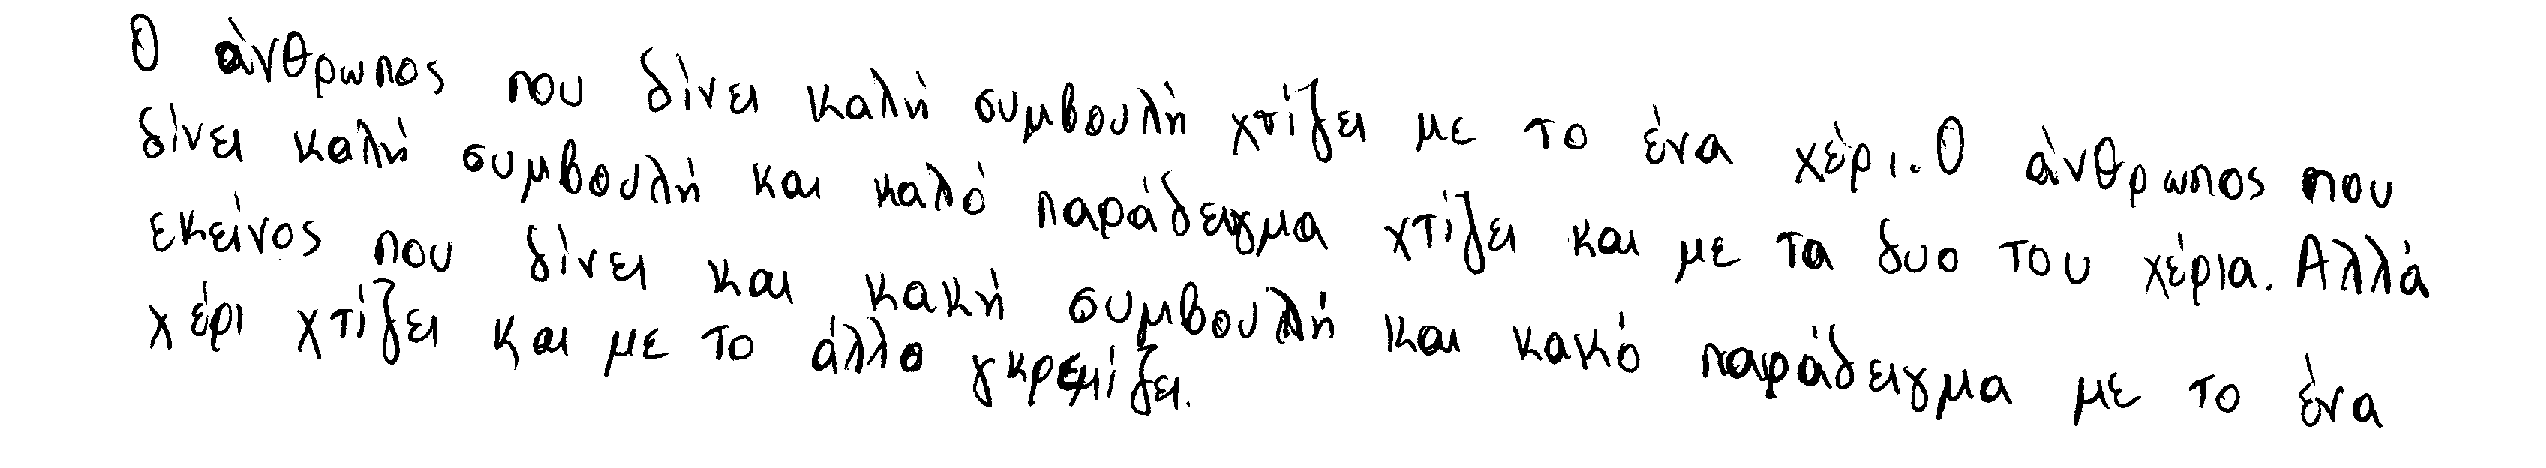 Ο άνθρωπος που δίνει καλή συμβουλή χτίζει με το ένα χέρι. Ο άνθρωπος που
δίνει καλή συμβουλή και καλό παράδειγμα χτίζει και με τα δυο του χέρια. Αλλά
εκείνος που δίνει και κακή συμβουλή και κακό παράδειγμα με το ένα
χέρι χτίζει και με το άλλο γκρεμίζει.